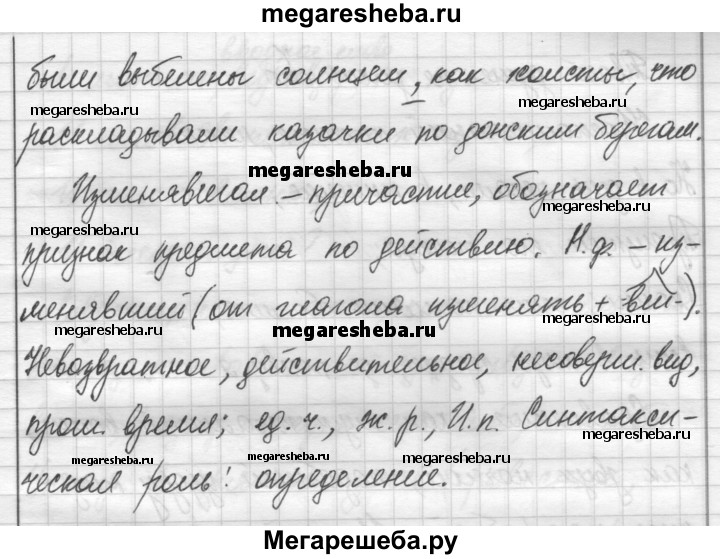 megaresheba.ru
были выбелены солнцем, как холсты, что
megaresheba.ru megaresheba.ru megaresheba.ru
раскладывали казачки по донским берегам.
megaresheba.ru
Изменявшая – причастие, обозначает
megaresheba.ru megaresheba.ru
признак предмета по действию. Н.ф. – из-
менявший (от глагола изменять + -вш-).
megaresheba.ru megaresheba.ru megaresheba.ru
Невозвратное, действительное, несоверш. вид,
прош. время; ед. ч., ж. р., И.п. Синтакси-
megaresheba.ru megaresheba.ru megaresheba.ru megaresheba.ru
ческая роль: определение.
Мегарешеба.ру